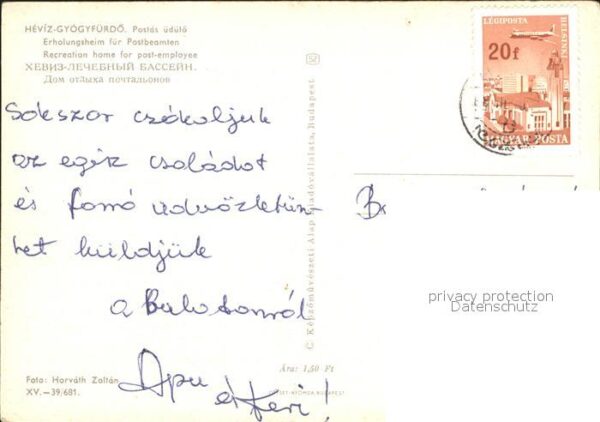 HÉVÍZ-GYÓGYFÜRDŐ. Postás üdülő
Erholungsheim für Postbeamten
Recreation home for post-employee
ХЕВИЗ-ЛЕЧЕБНЫЙ БАССЕЙН.
Дом отдыха почтальонов
Sokszor csókoljuk
az egész családot
és forró üdvözletün-
ket küldjük
a Balatonról
Apu
és Keri!
Foto: Horváth Zoltán
XV.—39/681.
© Képzőművészeti Alap Kiadóvállalata, Budapest
Ára: 1,50 Ft
OFFSET-NYOMDA BUDAPEST
LÉGIPOSTA
HELSINKI
20f
MAGYAR POSTA
B
privacy protection
Datenschutz